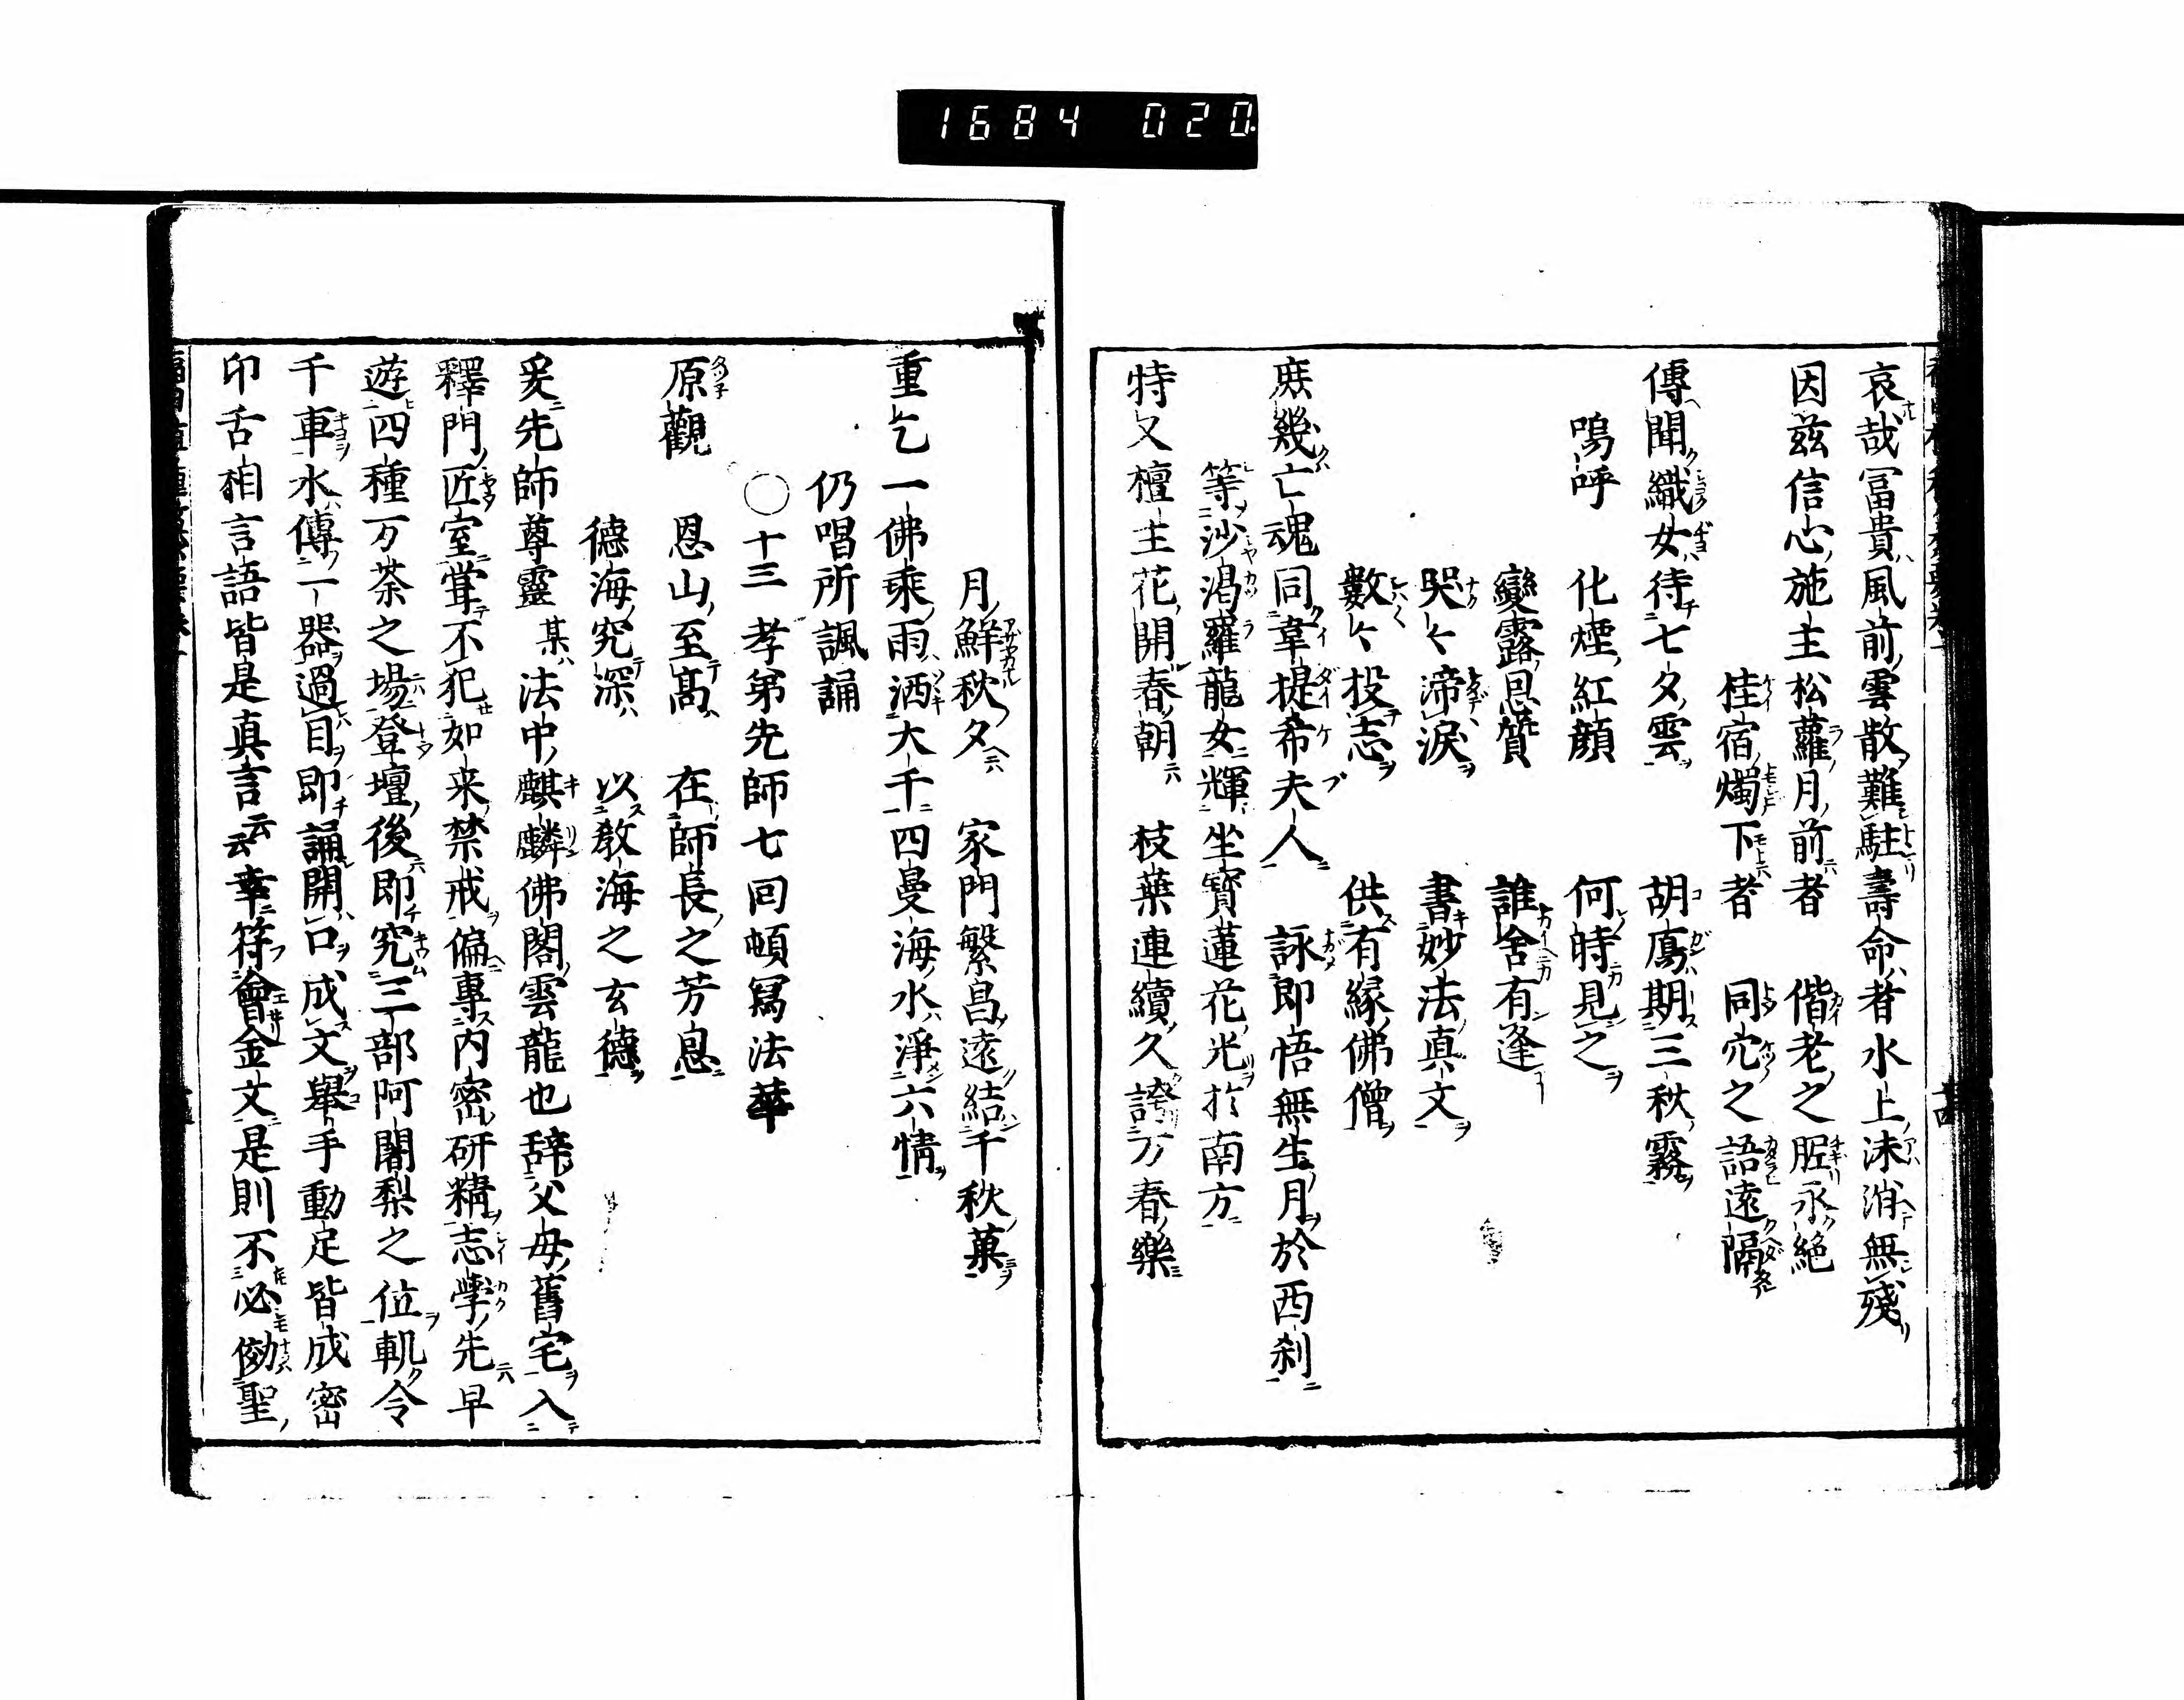 1684 020.
哀哉冨貴風前雲散難駐壽命者水上沫消無殘
因兹信心施主松蘿月前者　偕老之眤永絶
桂宿燭下者　同穴之語遠隔
傳聞織女待七夕雲　胡鴈期三秋霧
嗚呼　化煙紅顔　何時見之
變露恩質　誰舍有逢
哭〻渧淚　書妙法真文
數〻投志　供有縁佛僧
庶幾亡魂同韋提希夫人　詠即悟無生月於西刹
等沙渇羅龍女輝　坐寳蓮花光於南方
特又檀主花開春朝　枝葉連續久誇万春樂
月鮮秋夕　家門繁昌遠結千秋菓
重乞一佛乘雨洒大千四曼海水淨六情
仍唱所諷誦
〇十三　孝弟先師七回頓冩法華
原觀　恩山至髙　在師長之芳恩
德海究深　以教海之玄德
爰先師尊靈某法中麒麟佛閣雲龍也辞父母舊宅入
釋門匠室嘗不犯如来禁戒偏專内密研精志學先早
遊四種万荼之場登壇後即究三部阿闍梨之位軏令
千車水傳一器過目即誦開口成文舉手動足皆成密
印舌相言語皆是真言云云幸符會金文是則不必効聖